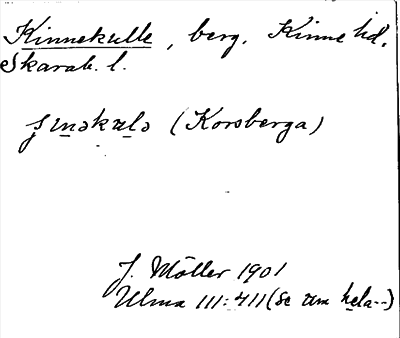 Kinnekulle, berg. Kinne hd.
Skarab. l.
(Korsberga)
J. Möller 1901
Ulma III: 411 (se um hela--)